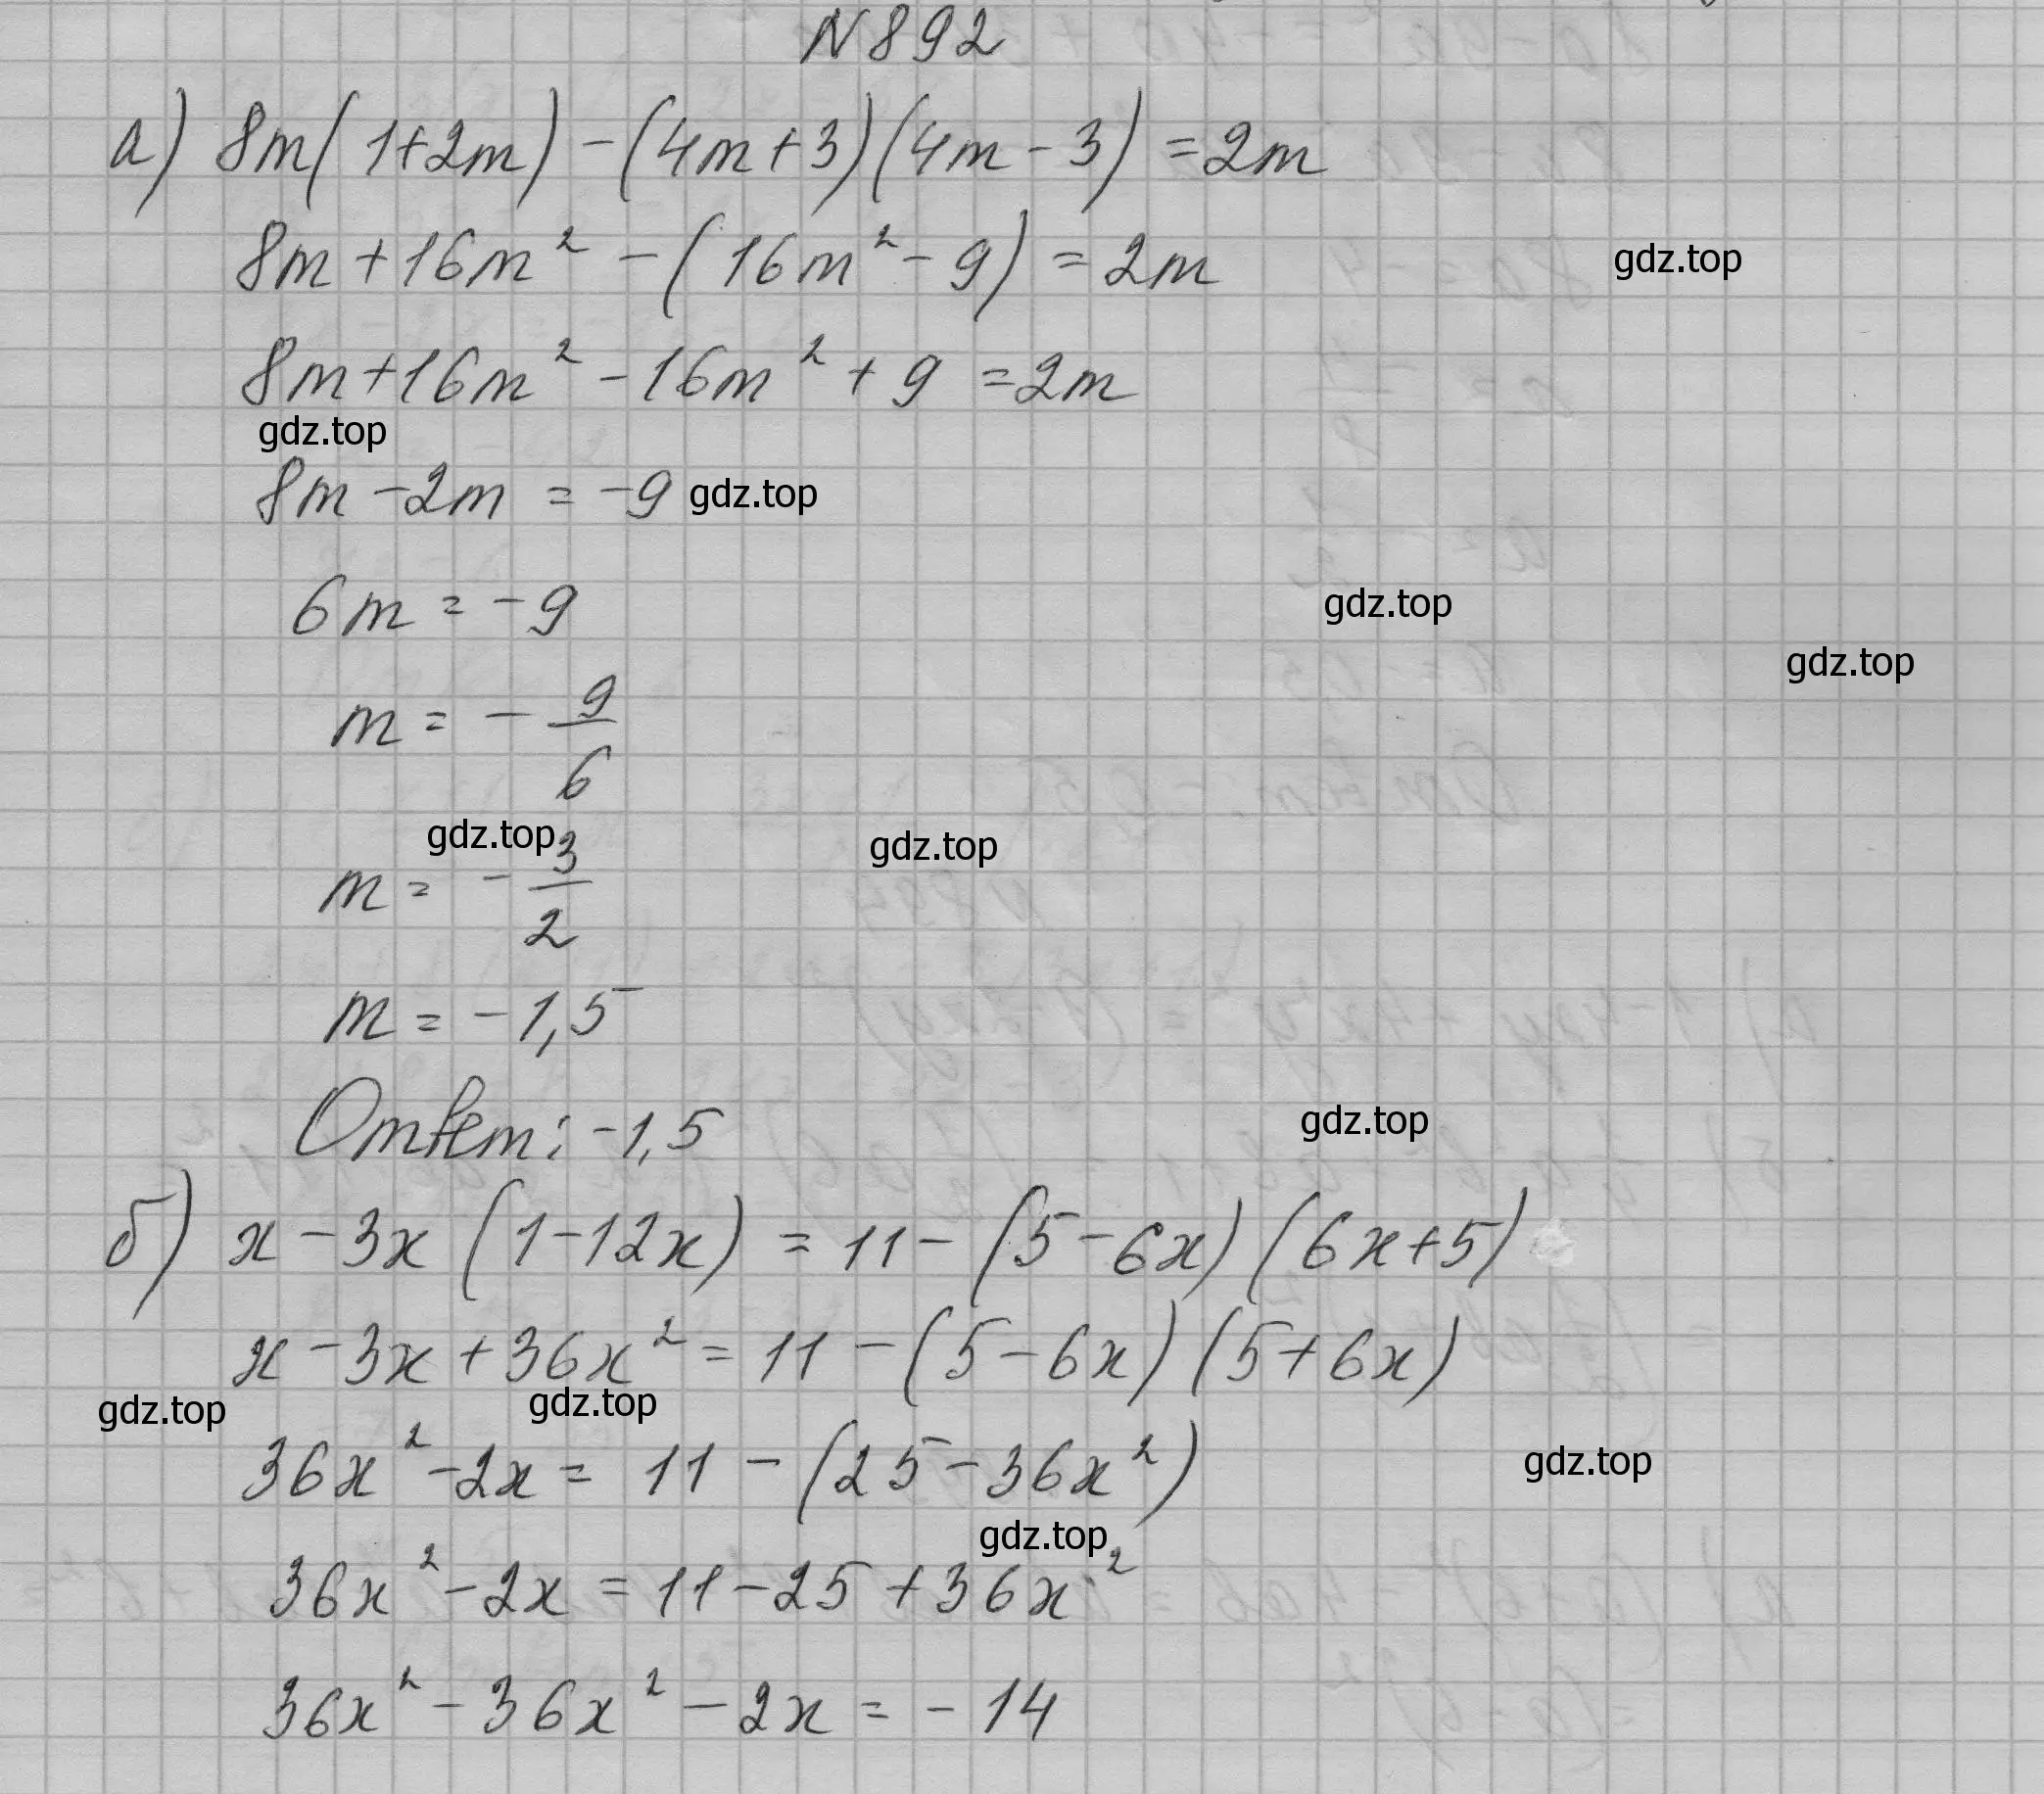 N 892
а) 8m(1+2m)-(4m+3)(4m-3)=2m
8m+16m²-(16m²-9)=2m
gdz.top
8m+16m²-16m²+9=2m
gdz.top
8m-2m=-9 gdz.top
6m=-9
gdz.top
gdz.top
m=-9/6
gdz.top
gdz.top
m=-3/2
m=-1,5
Ответ: -1,5
gdz.top
б) x-3x(1-12x)=11-(5-6x)(6x+5)
x-3x+36x²=11-(5-6x)(5+6x)
gdz.top gdz.top
36x²-2x=11-(25-36x²)
gdz.top
gdz.top
36x²-2x=11-25+36x²
36x²-36x²-2x=-14